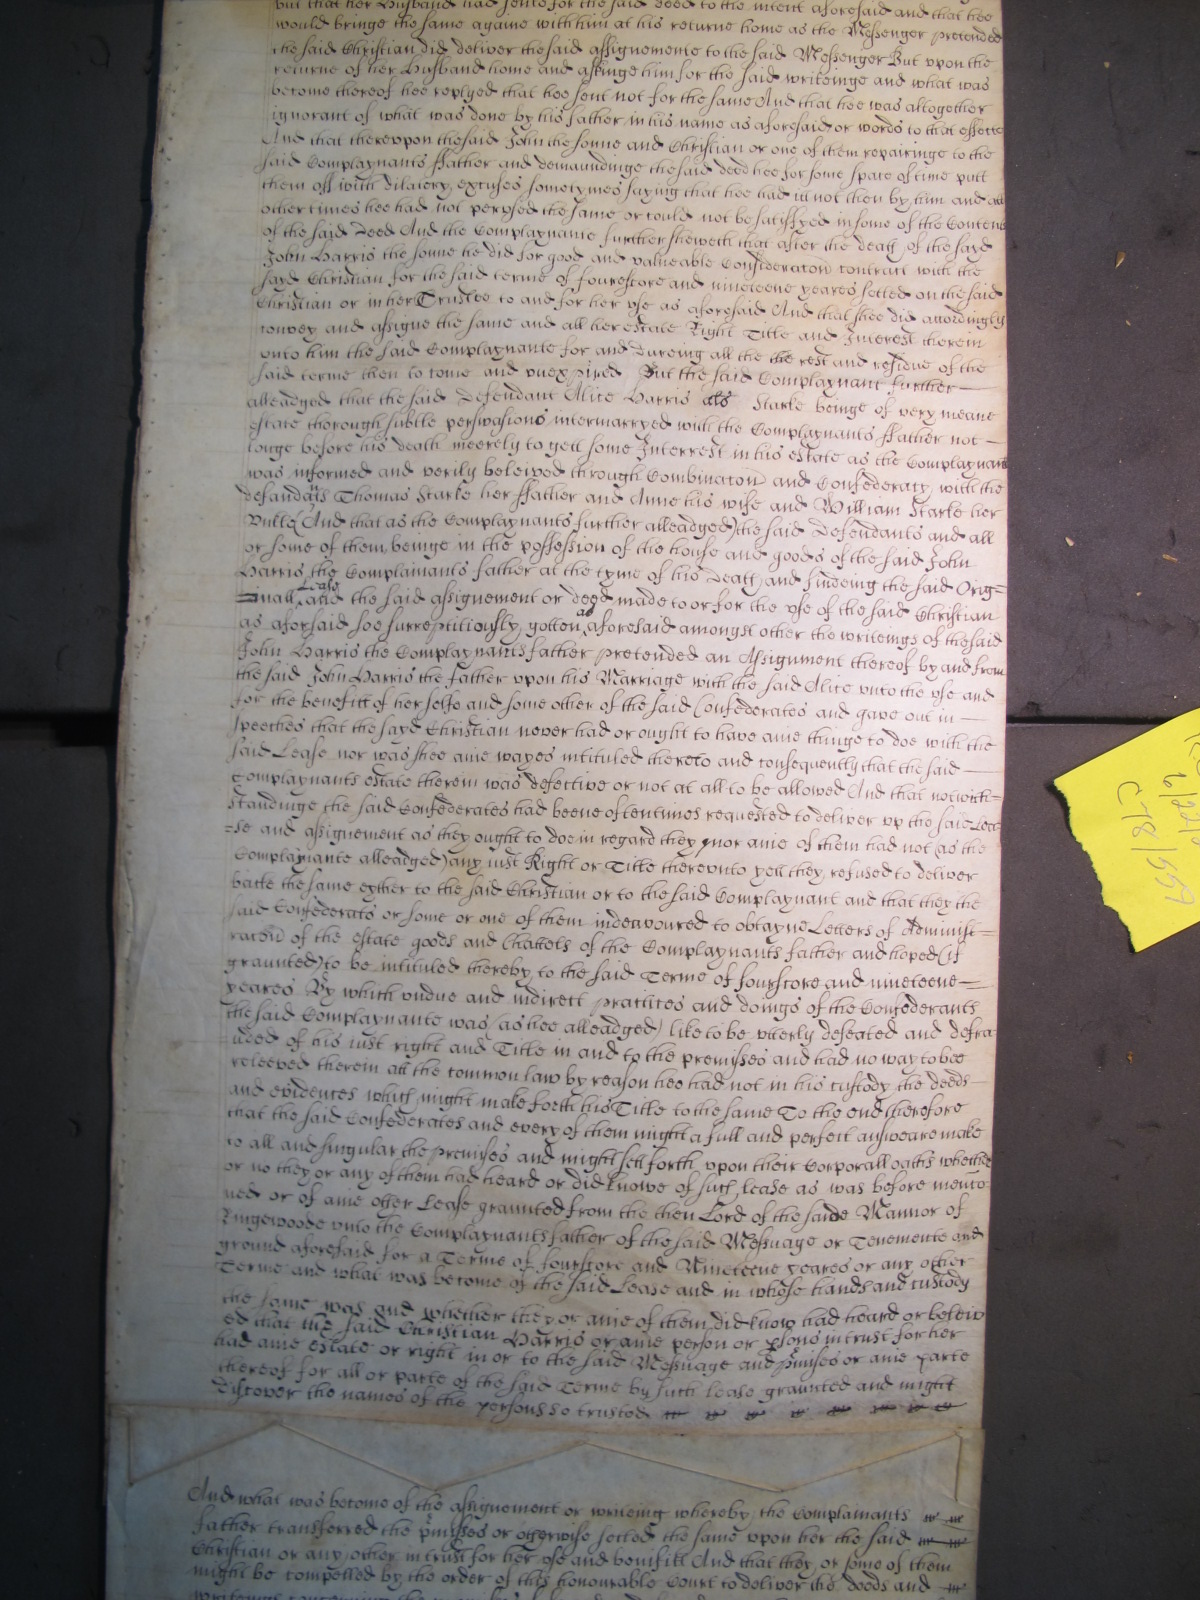 but that her Husband had sente for the said deed to the intent aforesaid and that hee
would bringe the same againe with him at his returne home as the Messenger pretended
the said Christian did deliver the said assignemente to the said Messenger But upon the
returne of her Husband home and askinge him for the said writeinge and what was
become thereof hee replyed that hee sent not for the same And that hee was altogether
ignorant of what was done by his father in his name as aforesaid or words to that effecte
And that thereuppon the said John the sonne and Christian or one of them repairinge to the
said Complaynants ffather and demaundinge the said deed hee for some space of time putt
them off with dilatory excuses sometymes saying that hee had itt not then by him and att
other times hee had not perused the same or could not be satisfyed in some of the Contents
of the said Deed And the Complaynante further sheweth that after the death of the sayd
John Harris the sonne he did for good and valueable Consideraton contract with the
sayd Christian for the said terme of fourescore and nineteene yeares setled on the said
Christian or in her Trustee to and for her use as aforesaid And that shee did accordingly
convey and assigne the same and all her estate Right Title and Interest therein
unto him the said Complaynante for and dureing all the the rest and residue of the
said terme then to come and unexpired But the said Complaynant further
alleadged that the said Defendant Alice Harris als Starke beinge of very meane
estate thorough subtle perswasions intermarryed with the Complaynants ffather not
longe before his death meerely to gett some Interrest in his estate as the Complaynant
was informed and verily beleived through Combinacon and Confederacy with the
defendants Thomas Starke her ffather and Anne his wife and William Starke her
Unkle (And that as the Complaynants further alleadged) the said Defendants and all
or some of them beinge in the possession of the house and goods of the said John
Harris the Complainants father at the tyme of his Death and findeing the said Orig=
=inall Lease and the said assignement or deed made to or for the use of the said Christian
as aforsaid soe surreptitiously gotten as aforesaid amongst other the writeings of the said
John Harris the Complaynants father pretended an Assignment thereof by and from
the said John Harris the father upon his Marriage with the said Alice unto the use and
for the benefitt of her selfe and some other of the said Confederates and gave out in
speeches that the sayd Christian never had or ought to have anie thinge to doe with the
said Lease nor was shee anie wayes intituled thereto and consequently that the said
Complaynants estate therein was defective or not at all to be allowed And that notwith=
standinge the said Confederates had beene oftentimes requested to deliver up the said Lea=
=se and assignement as they ought to doe in regard they nor anie of them had not (as the
Complaynante alleadged) any just Right or Title thereunto yett they refused to deliver
backe the same eyther to the said Christian or to the said Complaynant and that they the
said Confederats or some or one of them indeavoured to obtayne Letters of Administ=
racon of the estate goods and Chattels of the Complaynants father and hoped (if
graunted) to be intituled thereby to the said Terme of fourscore and nineteene
yeares By which undue and indirect practices and doings of the Confederants
the said Complaynante was (as hee alleadged) like to be utterly defeated and defra
uded of his just right and Title in and to the premisses and had no way to bee
releeved therein att the common law by reason hee had not in his custody the deeds
and evidences which might make forth his Title to the same To the end therefore
that the said Confederates and every of them might a full and perfect answeare make
to all and singular the premises and might sett forth upon their Corporall oaths whether
or no they or any of them had heard or did knowe of such lease as was before mentio
ned or of anie other Lease graunted from the then Lord of the saide Mannor of
Ringewoode unto the Complaynants father of the said Messuage or Tenemente and
ground aforesaid for a Terme of fourscore and Nineteene yeares or any other
Terme and what was become of the said Lease and in whose hands and custody
the same was and whether they or anie of them did know had heard or beleiv
ed that the said Christian Harris or anie person or psons in trust for her
had anie estate or right in or to the said Messuage and pmises or anie parte
thereof for all or parte of the said Terme by such lease graunted and might
discover the names of the persons so trusted
And what was become of the assignement or writeing whereby the Complainants
father transferred the pmisses or otherwise setled the same upon her the said
Christian or any other in trust for her use and benifitt And that they or some of them
might be compelled by the order of this honourable Court to deliver the deeds and
6/22/
C78/559